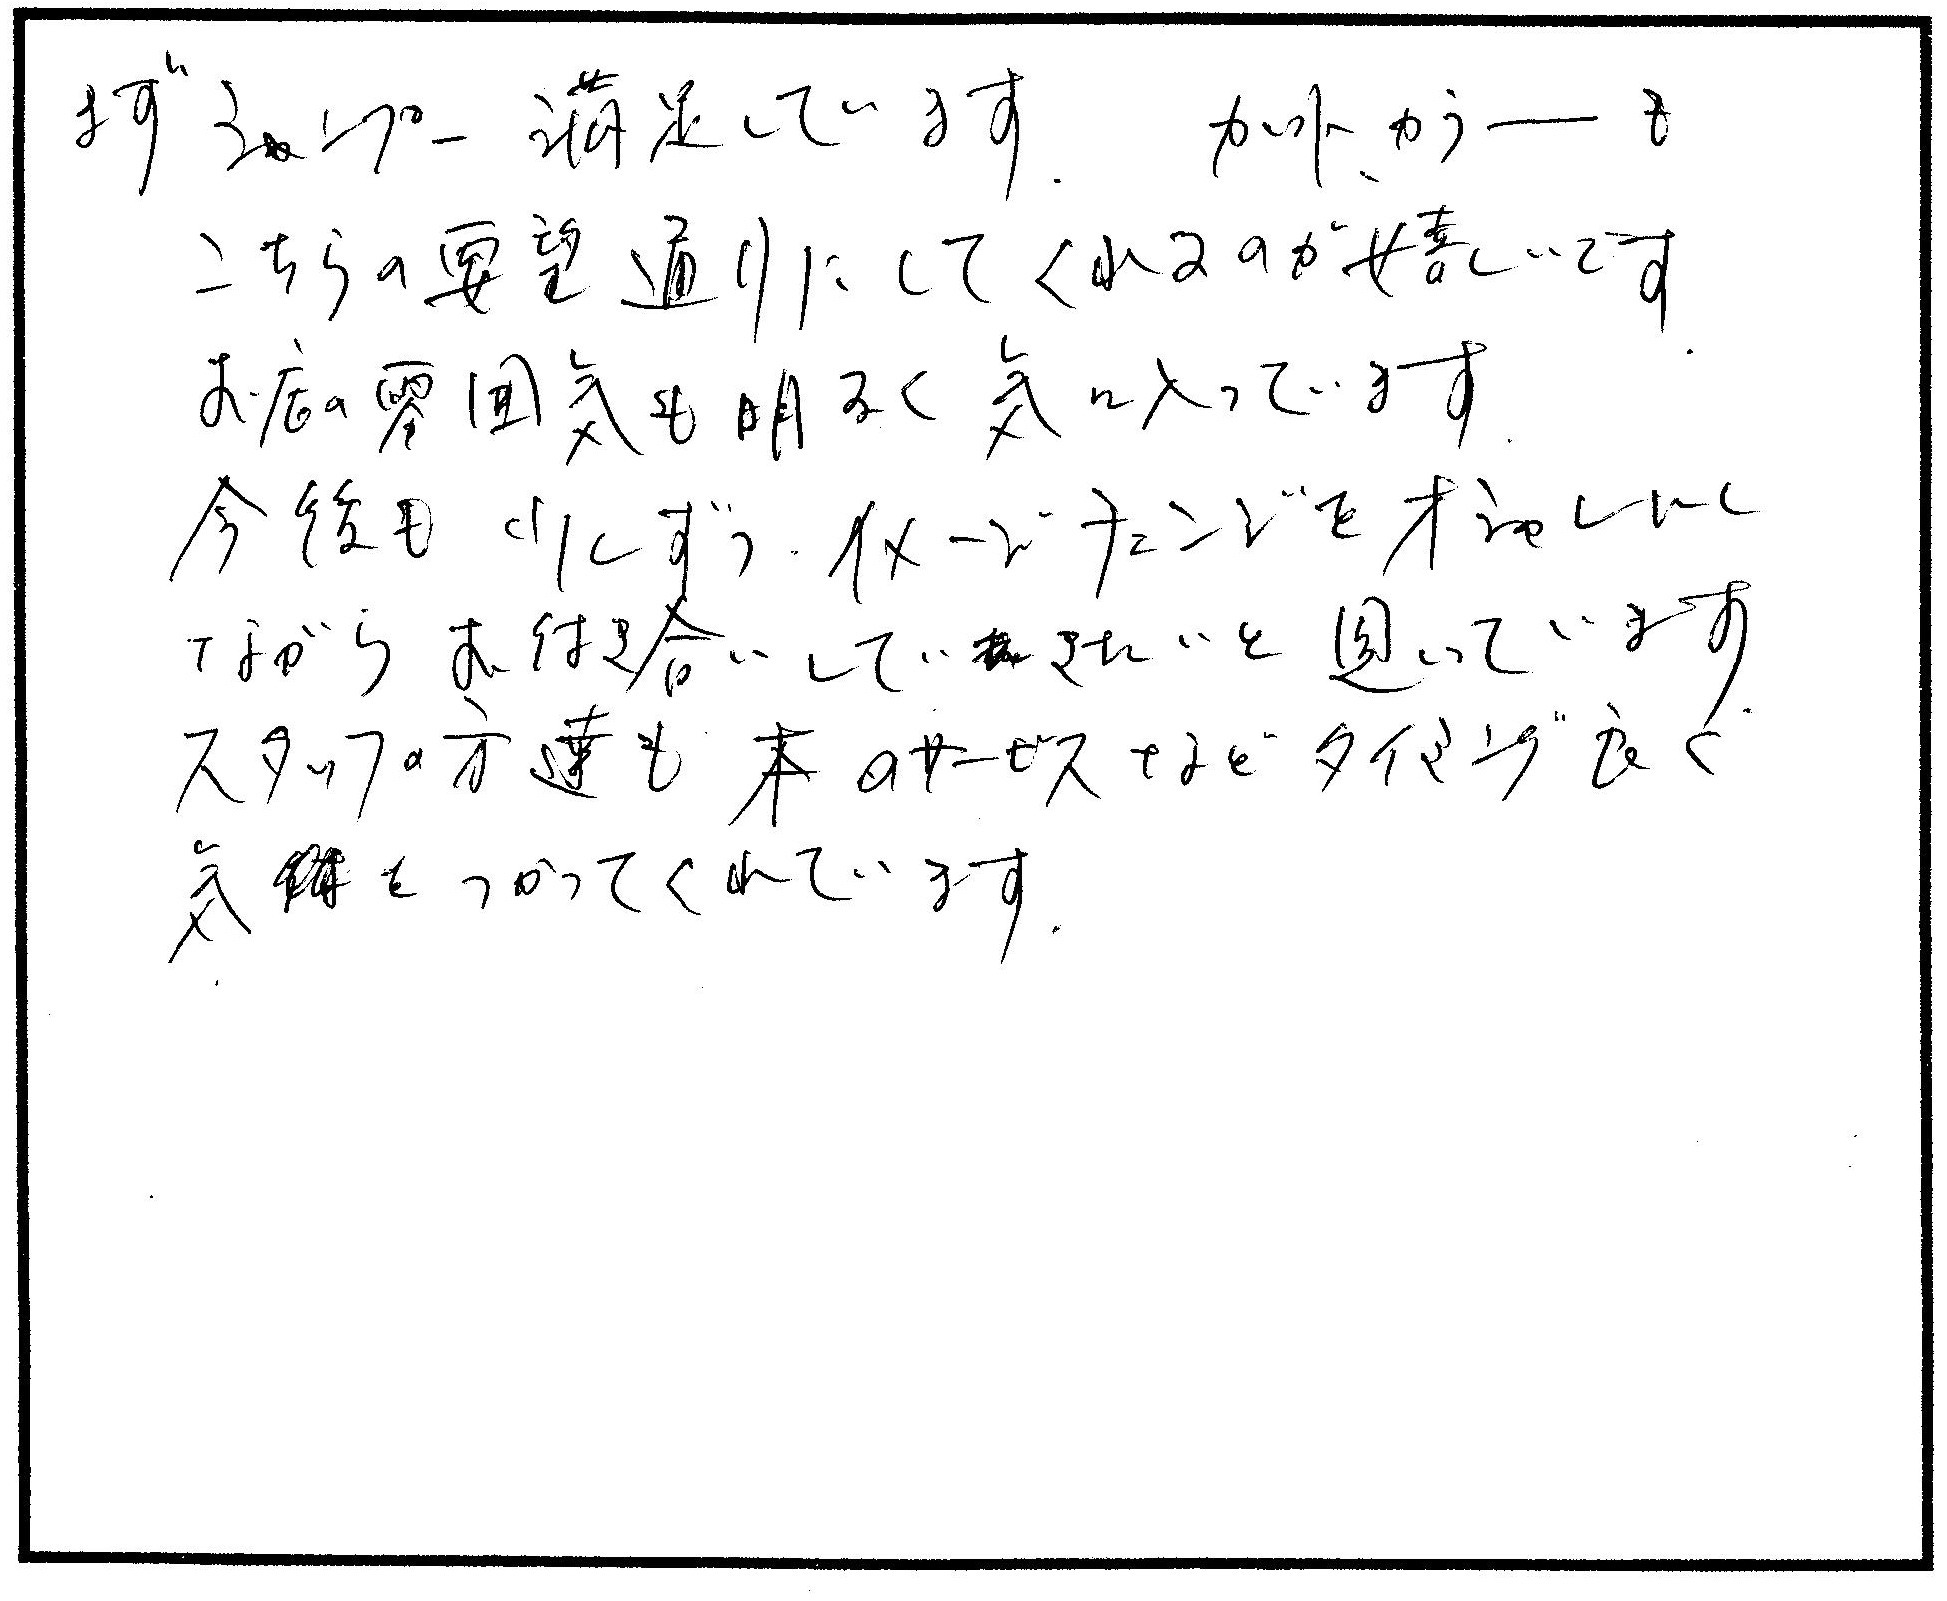 まずシャンプー満足しています. カット、カラーも
こちらの要望通りにしてくれるのが嬉しいです.
お店の雰囲気も明るく気に入っています.
今後も少しずつイメージチェンジをオシャレにし
ながらお付き合いしていきたいと思っています.
スタッフの方達も本のサービスなどタイミング良く
気をつかってくれています.